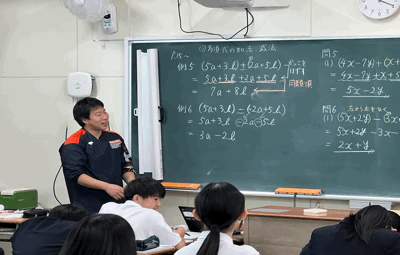 P.15~ ◎多項式の加法、減法
例5 (5a+3b)+(2a+5b)
= 5a+3b+2a+5b
= 7a+8b
同類項
例6 (5a+3b)-(2a+5b)
= 5a+3b-2a-5b
= 3a-2b
問5
(1) (4x-7y)+(x+
= 4x-7y+x+5
= 5x-2y
問6
(1) (5x+2y)-(3x
= 5x+2y-3x-
= 2x+y